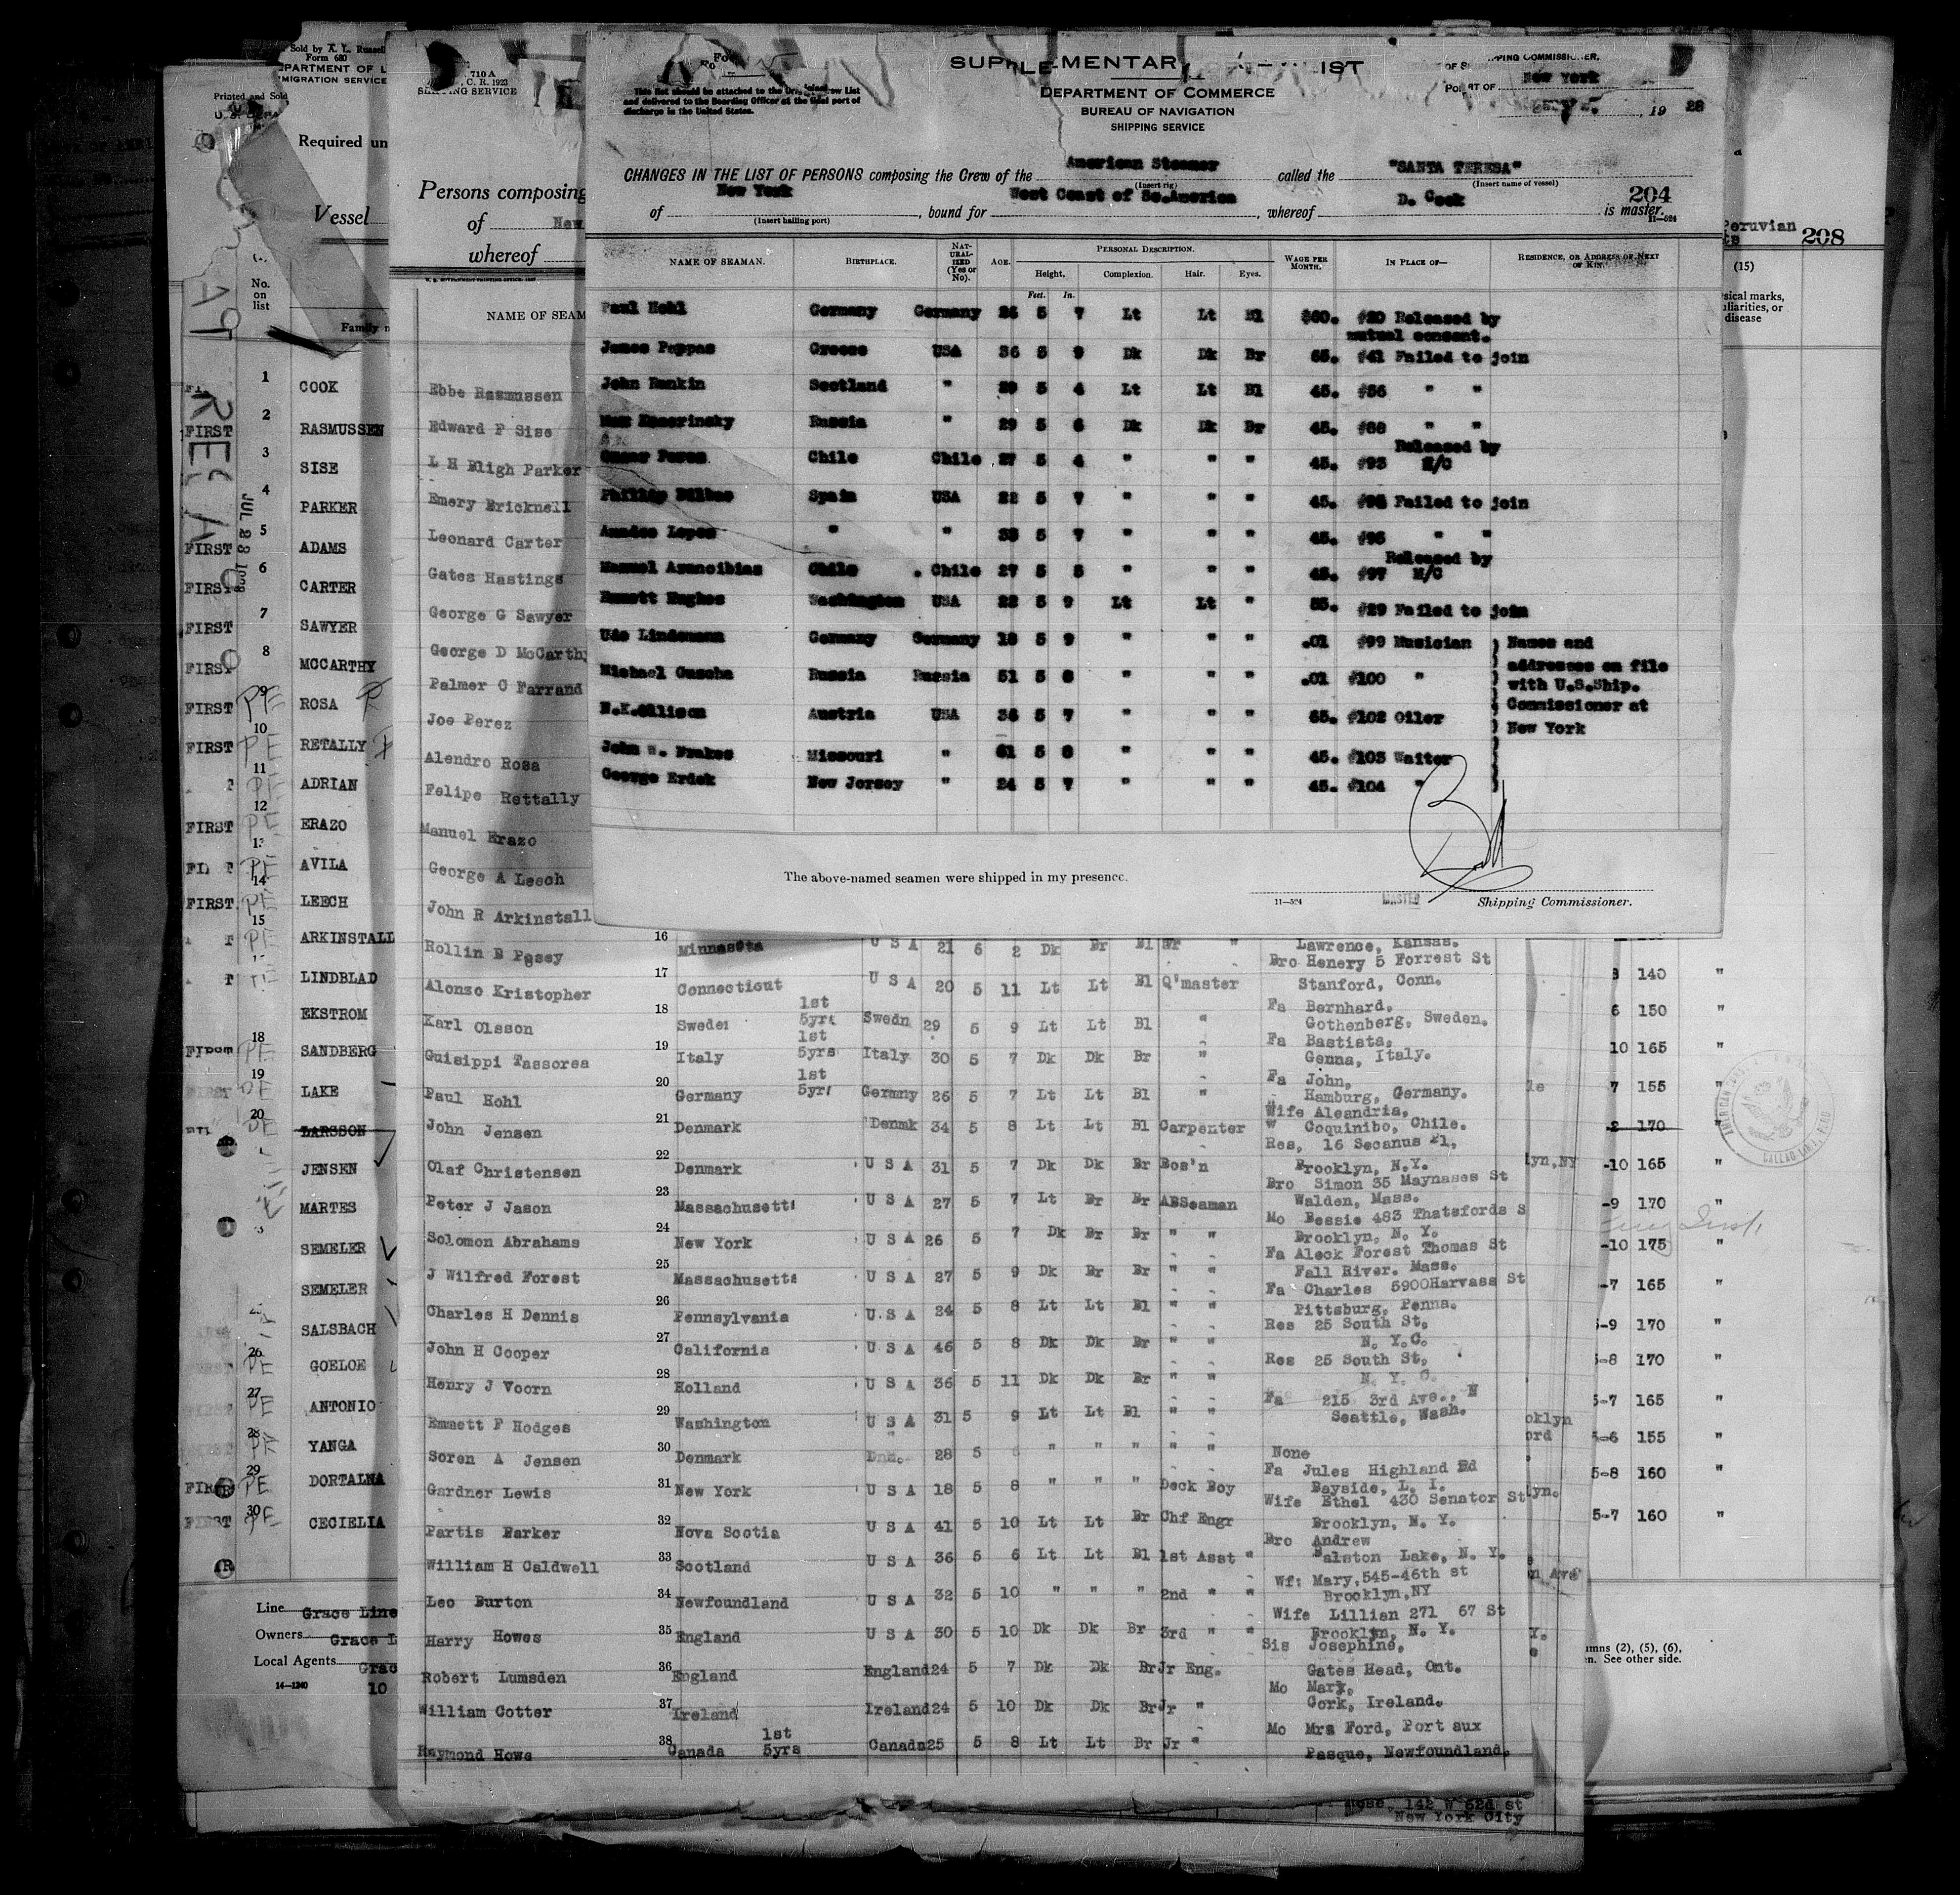 SUPPLEMENTARY LIST
DEPARTMENT OF COMMERCE
BUREAU OF NAVIGATION
SHIPPING SERVICE
This list should be attached to the Crew List
and delivered to the Boarding Officer at the final port of
discharge in the United States.
SHIPPING COMMISSIONER,
PORT OF New York
, 19 28
CHANGES IN THE LIST OF PERSONS composing the Crew of the American Steamer called the "SANTA TERESA"
(Insert rig) (Insert name of vessel)
of New York, bound for West Coast of So.America, whereof D. Cook is master.
(Insert hailing port)
204
11—524
NAME OF SEAMAN. BIRTHPLACE. NAT-URAL-IZED (Yes or No). AGE. PERSONAL DESCRIPTION. WAGE PER MONTH. IN PLACE OF— RESIDENCE, OR ADDRESS OF NEXT OF KIN.
Height, Complexion. Hair. Eyes.
Feet. In.
Paul Hohl Germany Germany 26 5 7 Lt Lt Bl $60. #20 Released by
mutual consent.
James Pappas Greece USA 36 5 9 Dk Dk Br 65. #41 Failed to join
John Rankin Scotland " 29 5 4 Lt Lt Bl 45. #86 " "
Russia " 29 5 6 Dk Dk Br 45. #88 " "
Released by
Chile Chile 27 5 4 " " " 45. #93 M/C
Phillip Bilbao Spain USA 22 5 7 " " " 45. Failed to join
Lopez " " 38 5 7 " " " 45. #96 " "
Released by
Manuel Avancibias Chile . Chile 27 5 5 " " " 45. #97 M/C
Emmett Hughes Washington USA 22 5 9 Lt Lt " 55. #29 Failed to join
Udo Lindemann Germany Germany 18 5 9 " " " .01 #99 Musician Names and
addresses on file
Michael Guscha Russia Russia 51 5 8 " " " .01 #100 " with U.S.Ship.
Commissioner at
N.K.Ellison Austria USA 36 5 7 " " " 65. #102 Oiler New York
John W. Drakes Missouri " 61 5 8 " " " 45. #103 Waiter
George Erdek New Jersey " 24 5 7 " " " 45. #104 "
The above-named seamen were shipped in my presence.
11—524 MASTER Shipping Commissioner.
710 A
C. R. 1923
SHIPPING SERVICE
Persons composing
of New
whereof
NAME OF SEAM
Ebbe Rasmussen
Edward F Sise
L H Bligh Parker
Emery Bricknell
Leonard Carter
Gates Hastings
George G Sawyer
George D McCarthy
Palmer C Farrand
Joe Perez
Alendro Rosa
Felipe Rettally
Manuel Erazo
George A Leech
John R Arkinstall
Rollin B Posey 16 Minnasota U S A 21 6 2 Dk Br Bl Br " Lawrence, Kansas.
Bro Henery 5 Forrest St
Alonzo Kristopher 17 Connecticut U S A 20 5 11 Lt Lt Bl Q'master Stanford, Conn.
Fa Bernhard,
Karl Olsson 18 Sweden 1st 5yrs Swedn 29 5 9 Lt Lt Bl " Gothenberg, Sweden.
Fa Bastista,
Guisippi Tassorea 19 Italy 1st 5yrs Italy 30 5 7 Dk Dk Br " Genna, Italy.
Fa John,
Paul Hohl 20 Germany 1st 5yrs Germny 26 5 7 Lt Lt Bl " Hamburg, Germany.
Wife Aleandria,
John Jensen 21 Denmark Denmk 34 5 8 Lt Lt Bl Carpenter " Coquinibo, Chile.
Res, 16 Secanus Pl,
Olaf Christensen 22 Denmark U S A 31 5 7 Dk Dk Br Bos'n Brooklyn, N.Y.
Bro Simon 35 Maynases St
Peter J Jason 23 Massachusetts U S A 27 5 7 Lt Br Br ABSeaman Walden, Mass.
Mo Bessie 483 Thatsfords S
Solomon Abrahams 24 New York U S A 26 5 7 Dk Br Br " " Brooklyn, N. Y.
Fa Aleck Forest Thomas St
J Wilfred Forest 25 Massachusetts U S A 27 5 9 Dk Br Br " " Fall River. Mass.
Fa Charles 5900Harvass St
Charles H Dennis 26 Pennsylvania U.S A 24 5 8 Lt Lt Bl " " Pittsburg, Penna.
Res 25 South St,
John H Cooper 27 California U S A 46 5 8 Dk Dk Br " " N. Y.C.
Res 25 South St,
Henry J Voorn 28 Holland U S A 36 5 11 Dk Dk Br " " N. Y. C.
Fa 215 3rd Ave., N
Emmett F Hodges 29 Washington U S A 31 5 9 Lt Lt Bl " " Seattle, Wash.
Soren A Jensen 30 Denmark Dnm. 28 5 " " " " " None
Fa Jules Highland Rd
Gardner Lewis 31 New York U S A 18 5 8 " " " Deck Boy Bayside, L. I.
Wife Ethel 430 Senator St
Partis Parker 32 Nova Scotia U S A 41 5 10 Lt Lt Br Chf Engr Brooklyn, N. Y.
Bro Andrew
William H Caldwell 33 Scotland U S A 36 5 6 Lt Lt Bl 1st Asst " Balston Lake, N. Y.
Wf: Mary,545-46th st
Leo Burton 34 Newfoundland U S A 32 5 10 " " " 2nd " " Brooklyn,NY
Wife Lillian 271 67 St
Harry Howes 35 England U S A 30 5 10 Dk Dk Br 3rd " " Brooklyn, N. Y.
Sis Josephine,
Robert Lumsden 36 England England24 5 7 Dk Dk Br Jr Eng. Gates Head, Ont.
Mo Mary,
William Cotter 37 Ireland Ireland24 5 10 Dk Dk Br Jr " Cork, Ireland.
Mo Mrs Ford, Port aux
Raymond Howe 38 Canada 1st 5yrs Canada25 5 8 Lt Lt Br Jr " Pasque, Newfoundland.
142 W 62d st
New York City
Sold by A. L. Russell
Form 680
DEPARTMENT OF L
IMMIGRATION SERVICE
Printed and Sold
Required un
Vessel
No. on list
Family n
JUL 23
1 COOK
2 FIRST RASMUSSEN
3 SISE
4 PARKER
5 FIRST ADAMS
6 FIRST CARTER
7 FIRST SAWYER
8 FIRST MCCARTHY
9 FIRST PE ROSA
10 FIRST PE RETALLY
11 PE ADRIAN
12 FIRST PE ERAZO
13 PE AVILA
14 FIRST PE LEECH
15 PE ARKINSTALL
LINDBLAD
EKSTROM
18 FIRST PE SANDBERG
19 FIRST PE LAKE
20 PE LARSSON
JENSEN
MARTES
SEMELER
SEMELER
SALSBACH
26 PE GOELOE
27 PE ANTONIO
28 PE YANGA
29 FIRST PE DORTALNA
30 FIRST PE CECIELIA
Line Grace Line
Owners Grace L
Local Agents Grac
14—1240 10
Peruvian
208
(15)
sical marks,
uliarities, or
disease
8 140 "
6 150 "
10 165 "
7 155 "
2 170 "
lyn,NY -10 165 "
-9 170 "
-10 175 "
-7 165 "
5-9 170 "
5-8 170 "
5-7 165 "
oklyn
ord 5-6 155 "
5-8 160 "
lyn.
5-7 160 "
n Ave
Y.
umns (2), (5), (6),
en. See other side.